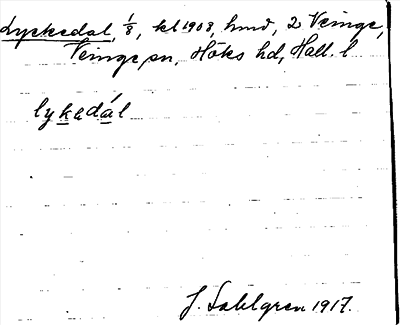 Lyckedal, 1/8, kl 1908, hmd, 2 Veinge,
Veinge sn, Höks hd, Hall. l
lykedál
J. Sahlgren 1917.